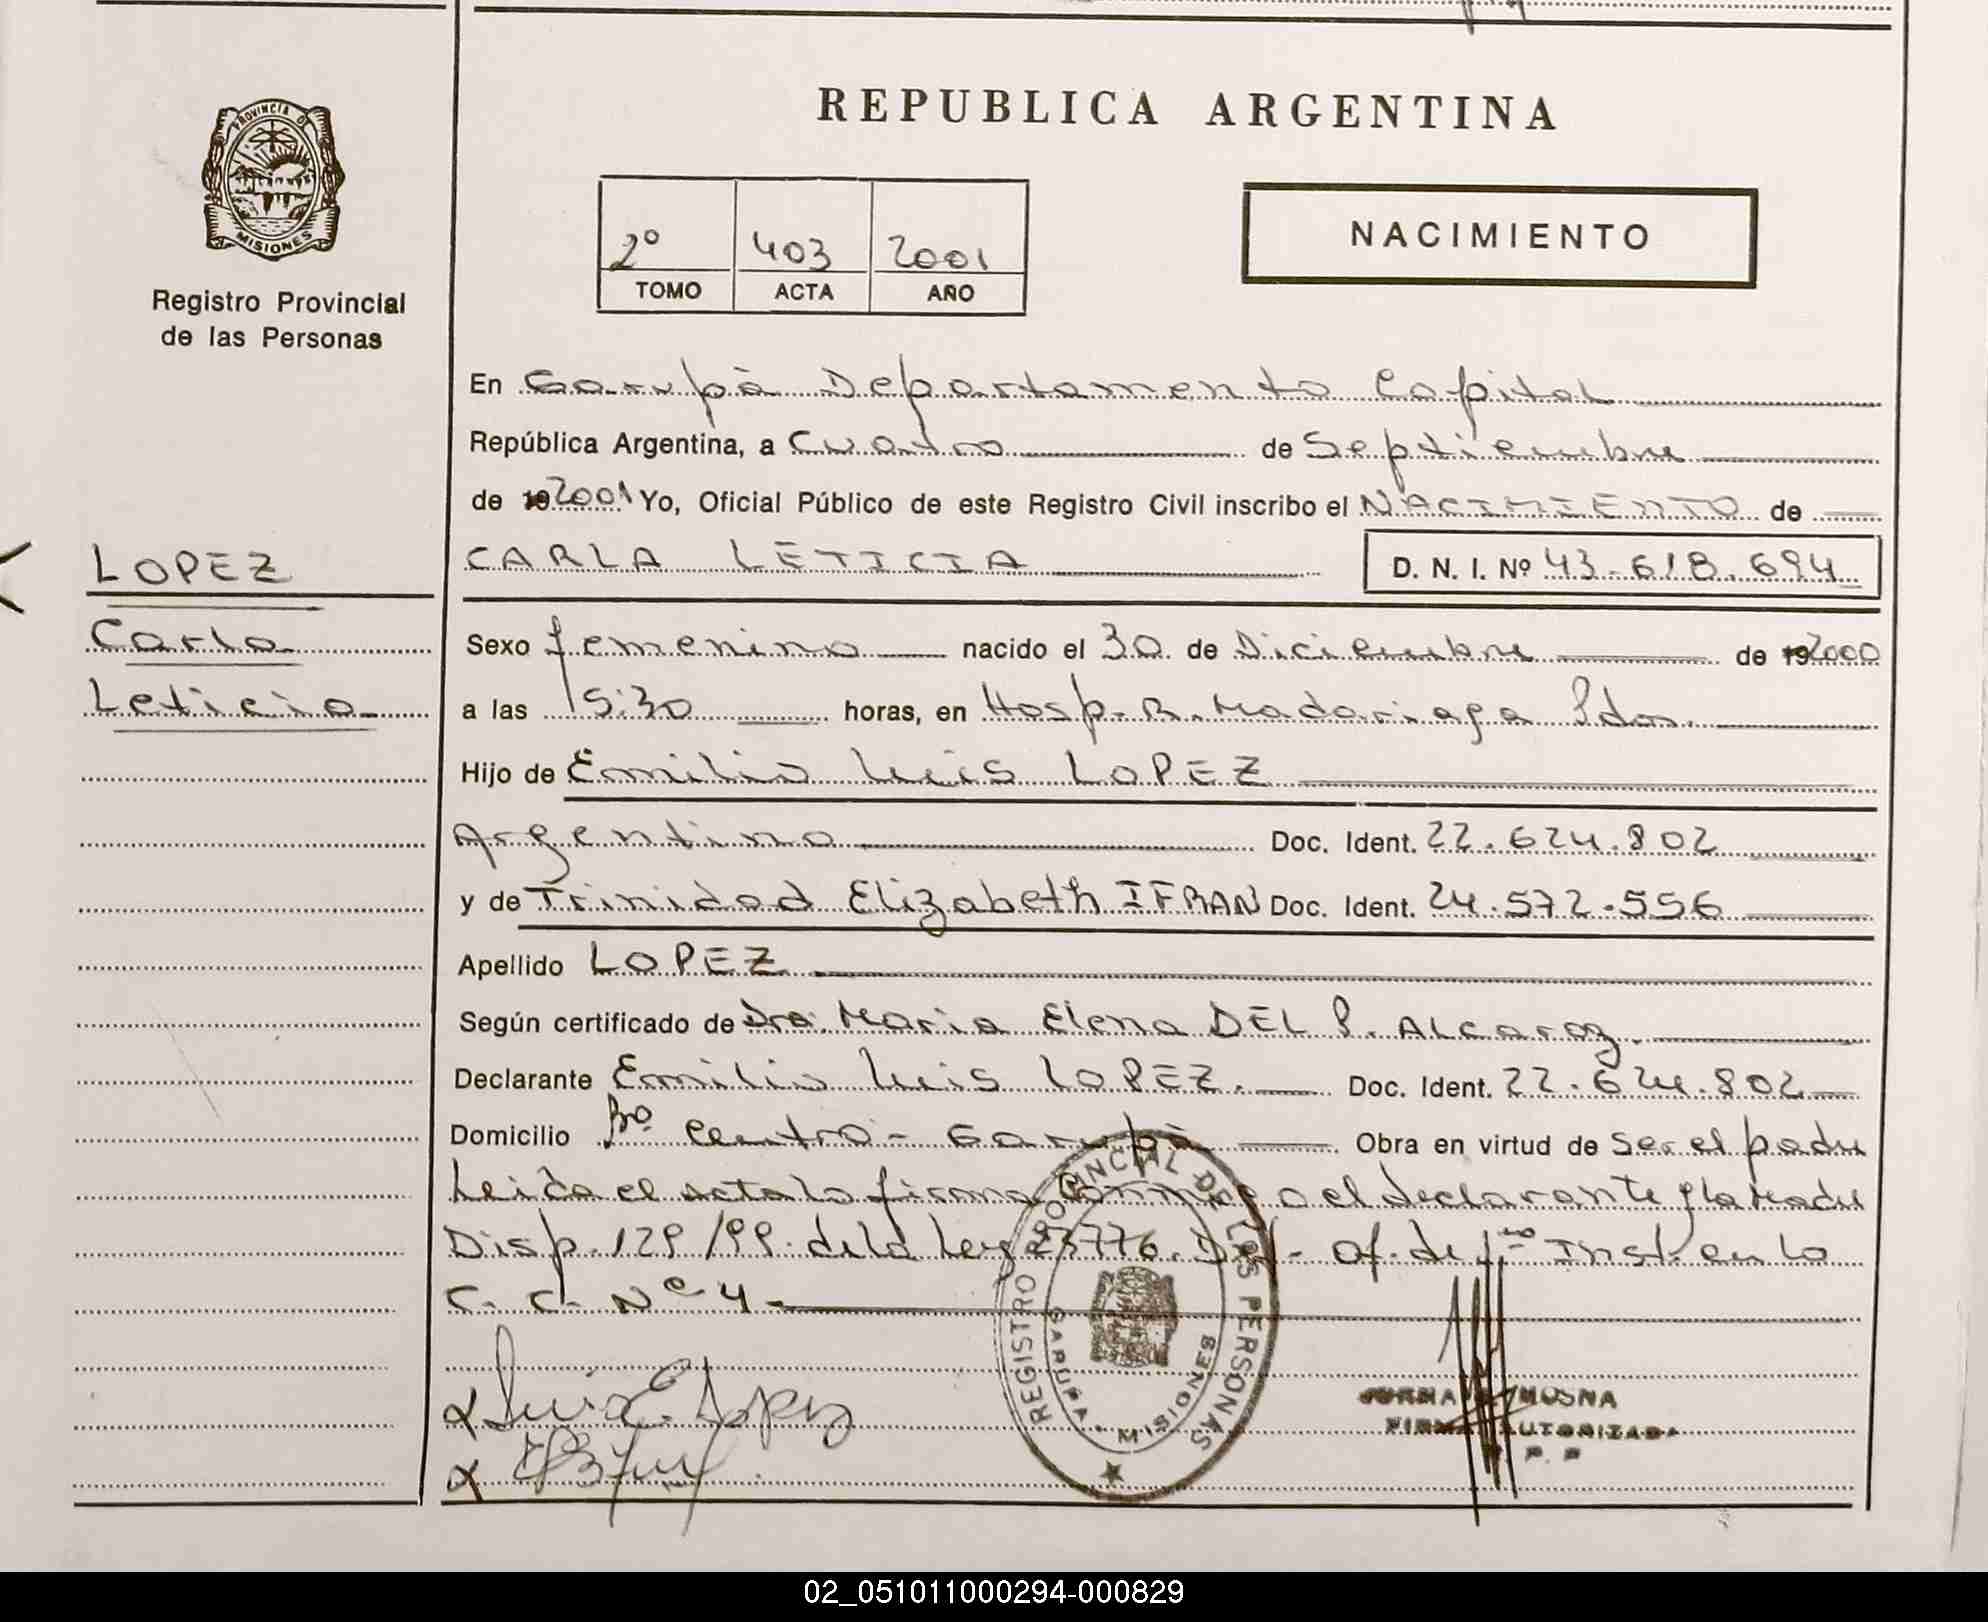 REPUBLICA ARGENTINA
PROVINCIA D
MISIONES
Registro Provincial
de las Personas
2º 403 2001
TOMO ACTA AÑO
NACIMIENTO
En Garupà Departamento Capital
República Argentina, a Cuatro de Septiembre
de 19 2001 Yo, Oficial Público de este Registro Civil inscribo el NACIMIENTO de
LOPEZ
Carla
Leticia
CARLA LETICIA D. N. I. Nº 43.618.694
Sexo femenino nacido el 30 de Diciembre de 19 2000
a las 15:30 horas, en Hosp. R. Madariaga Pdas.
Hijo de Emilio Luis LOPEZ
Argentino Doc. Ident. 22.624.802
y de Trinidad Elizabeth IFRAN Doc. Ident. 24.572.556
Apellido LOPEZ
Según certificado de Dra. Maria Elena DEL P. ALcaraz.
Declarante Emilio Luis LOPEZ. Doc. Ident. 22.624.802
Domicilio Bº. Centro - Garupà Obra en virtud de Ser el padre
Leida el acta la firma conmigo el declarante y la Madre
Disp. 129/99. de la Ley 23776. Of. de 1ra Inst. en la
C. C. Nº 4 -
Luis E. Lopez
REGISTRO PROVINCIAL DE LAS PERSONAS
GARUPA - MISIONES
MOSNA
FIRMA AUTORIZADA
02_051011000294-000829